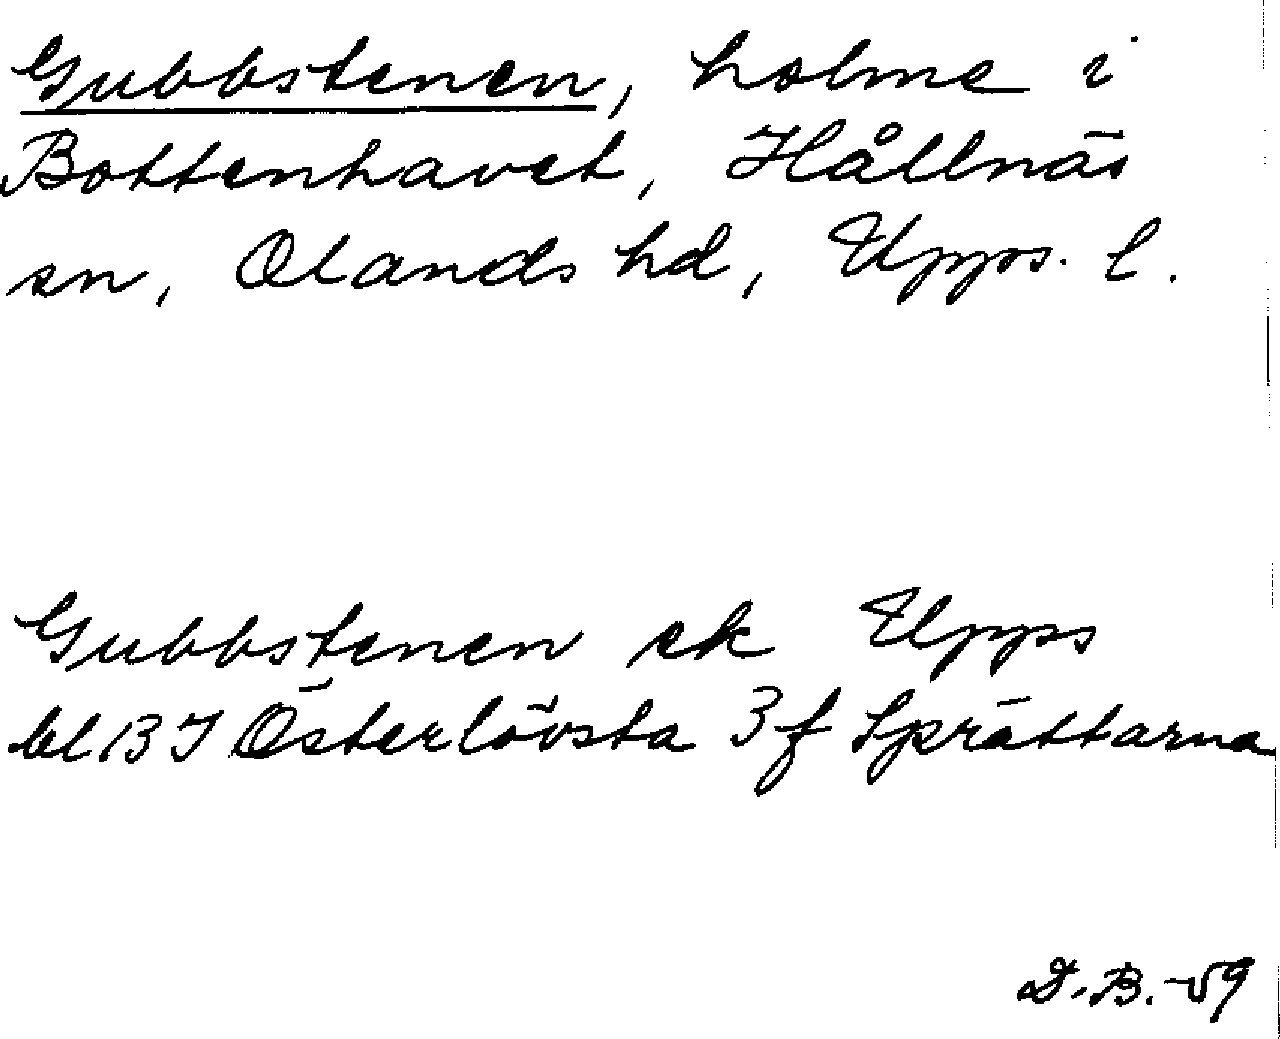 Gubbstenen, holme i
Bottenhavet, Hållnäs
sn, Olands hd, Upps. l.
Gubbstenen ek Upps
bl 13 I Österlövsta 3 f Sprättarna
D.B. -59